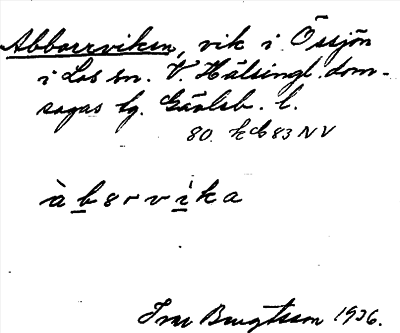 Abborrviken, vik i Össjön
i Los sn. V. Hälsingl. dom-
sagas tg. Gävleb. l.
80. k C 83 NV
àbervika
Bengtsson 1936.